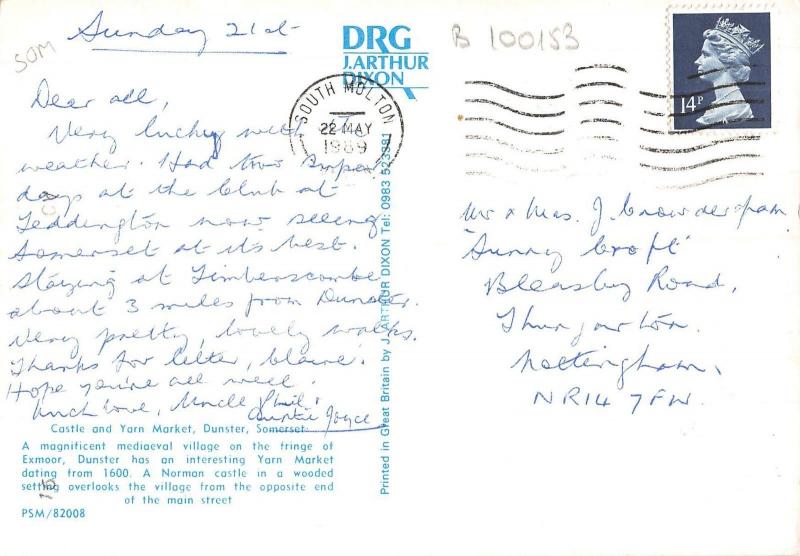 Sunday 21st
SOM
DRG
J. ARTHUR
DIXON
B 100153
14P
SOUTH MOLTON
22 MAY
1989
Dear all,
Very lucky with
weather. Had two super
days at the Club at
Teddington now seeing
Somerset at its best.
Staying at Timberscombe
about 3 miles from Dunster.
Very pretty, lovely walks.
Thanks for letter, Claire.
Hope you're all well.
Much love, Uncle Phil &
Auntie Joyce
Castle and Yarn Market, Dunster, Somerset
A magnificent mediaeval village on the fringe of
Exmoor, Dunster has an interesting Yarn Market
dating from 1600. A Norman castle in a wooded
setting overlooks the village from the opposite end
of the main street
PSM/82008
Printed in Great Britain by J. ARTHUR DIXON Tel: 0983 523381
Mr & Mrs. J.
'Sunny Croft'
Bleasby Road,
Thurgarton.
Nottingham,
NR14 7FW.